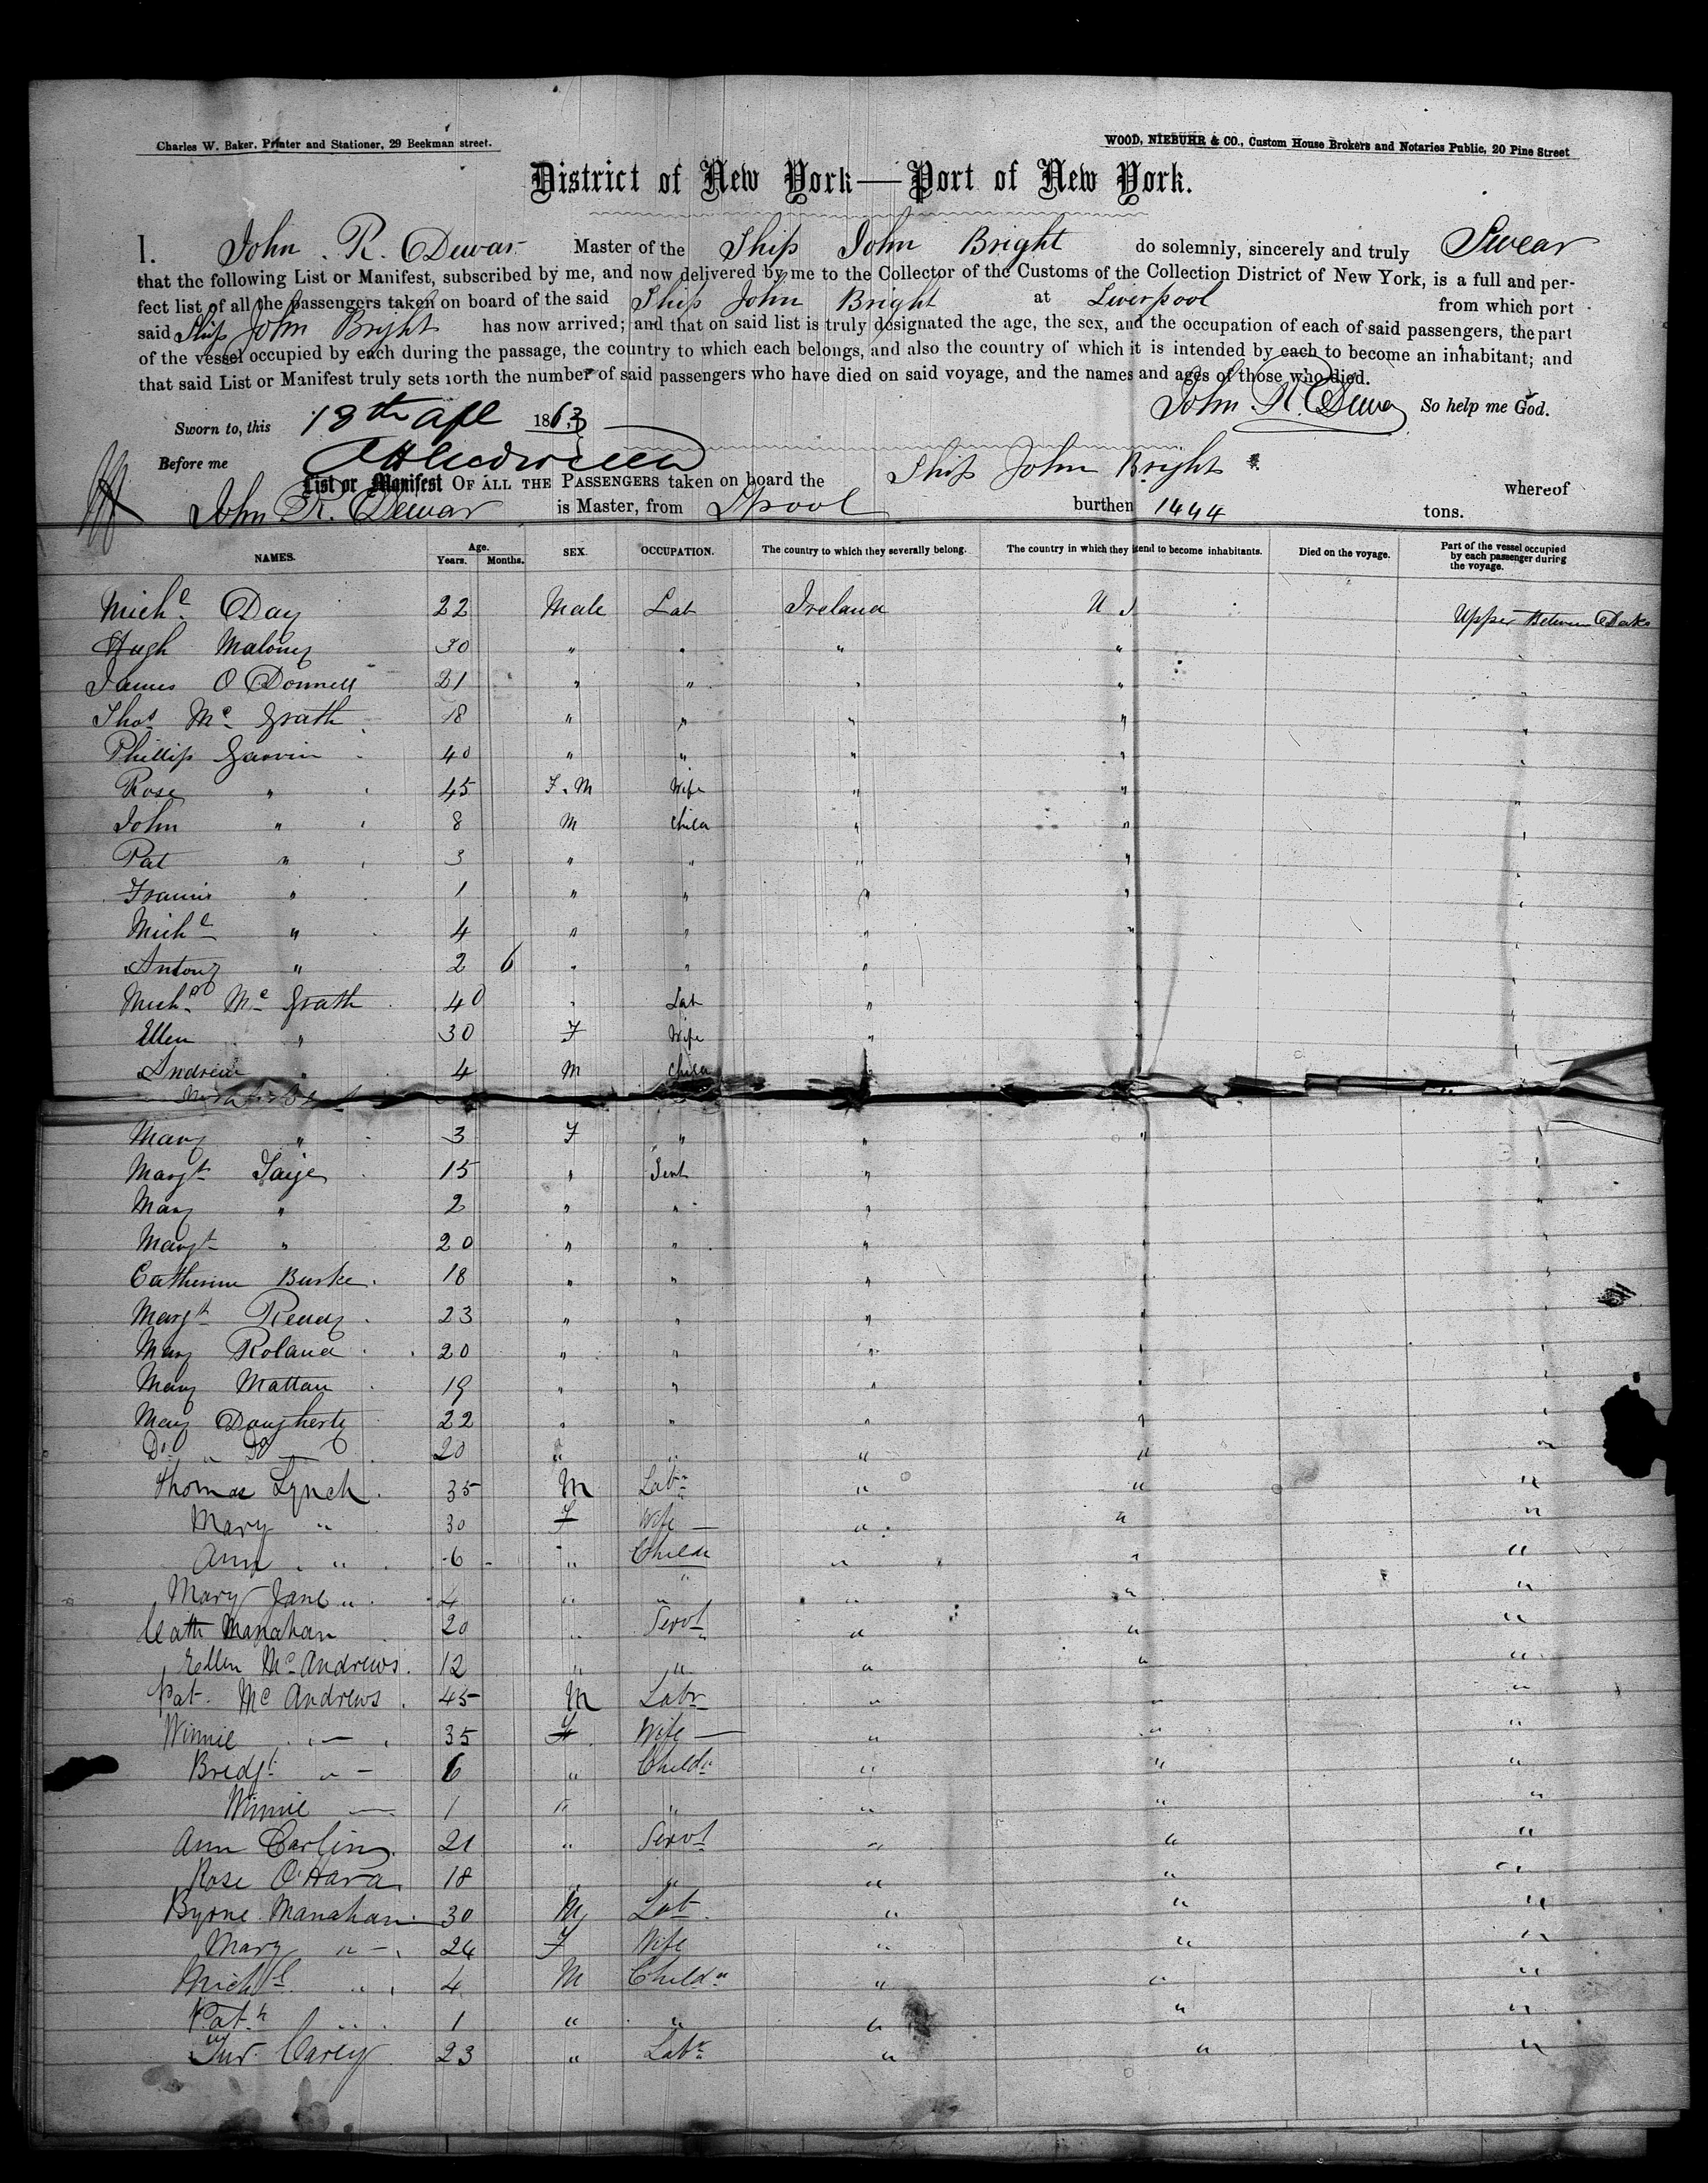 Charles W. Baker, Printer and Stationer, 29 Beekman street.
WOOD, NIEBUHR & CO., Custom House Brokers and Notaries Public, 20 Pine Street
District of New York—Port of New York.
I. John. R. Dewar Master of the Ship John Bright do solemnly, sincerely and truly Swear
that the following List or Manifest, subscribed by me, and now delivered by me to the Collector of the Customs of the Collection District of New York, is a full and per-
fect list of all the passengers taken on board of the said Ship John Bright at Liverpool from which port
said Ship John Bright has now arrived; and that on said list is truly designated the age, the sex, and the occupation of each of said passengers, the part
of the vessel occupied by each during the passage, the country to which each belongs, and also the country of which it is intended by each to become an inhabitant; and
that said List or Manifest truly sets forth the number of said passengers who have died on said voyage, and the names and ages of those who died.
John. R. Dewar So help me God.
Sworn to, this 18th Apl 1863
Before me
List or Manifest OF ALL THE PASSENGERS taken on board the Ship John Bright whereof
John R. Dewar is Master, from Lpool burthen 1444 tons.
NAMES. Age. Years. Months. SEX. OCCUPATION. The country to which they severally belong. The country in which they intend to become inhabitants. Died on the voyage. Part of the vessel occupied by each passenger during the voyage.
Michl Day 22 Male Lab Ireland U S Upper Between Decks
Hugh Maloney 30 " " " "
James O Donnell 21 " " " " "
Thos Mc Grath 18 " " " " "
Phillip Garvin 40 " " " " "
Rose " 45 F.M Wife " " "
John " 8 M Child " " "
Pat " 3 " " " " "
Francis " 1 " " " " "
Michl " 4 " " " " "
Antony " 2 6 " " " "
Michl Mc Grath 40 " Lab " " "
Ellen " 30 F Wife " " "
Andrew " 4 M Child
Mary " 3 F " " " "
Margt 15 " Servt " " "
Mary " 2 " " " " "
Margt " 20 " " " " "
Catherine Burke 18 " " " " "
Margt 23 " " " " "
Mary Roland 20 " " " " "
Mary Mattan 19 " " " " "
Mary Dougherty 22 " " " " "
Do " Do 20 " " " " "
Thomas Lynch 35 M Labr " " "
Mary " 30 F Wife " " "
Ann " 6 " Child " " "
Mary Jane " 4 " " " " "
Cath Manahan 20 " Servt " " "
Ellen Mc Andrews 12 " " " " "
Pat. Mc Andrews 45 M Labr " " "
Winnie " 35 F Wife " " "
Bredgt " 6 " Childn " " "
Winnie — 1 " " " " "
Ann Carling 21 " Servt " " "
Rose O'Hara 18 " " " " "
Byrne Manahan 30 M Lab " " "
Mary " 24 F Wife " " "
Michl " 4 M Childn " " "
Patk " 1 " " " " "
Carey 23 " Labr " " "